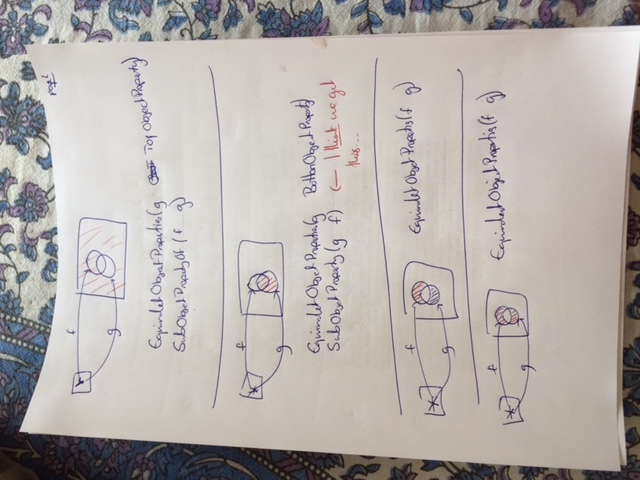 f
g
*
EquivalentObjectProperties(g TopObjectProperty)
SubObjectPropertyOf(f g)
f
g
*
EquivalentObjectProperties(g BottomObjectProperty)
SubObjectProperty(g f)
← I think we get
this...
f
g
*
EquivalentObjectProperties(f g)
f
g
*
EquivalentObjectProperties(f g)